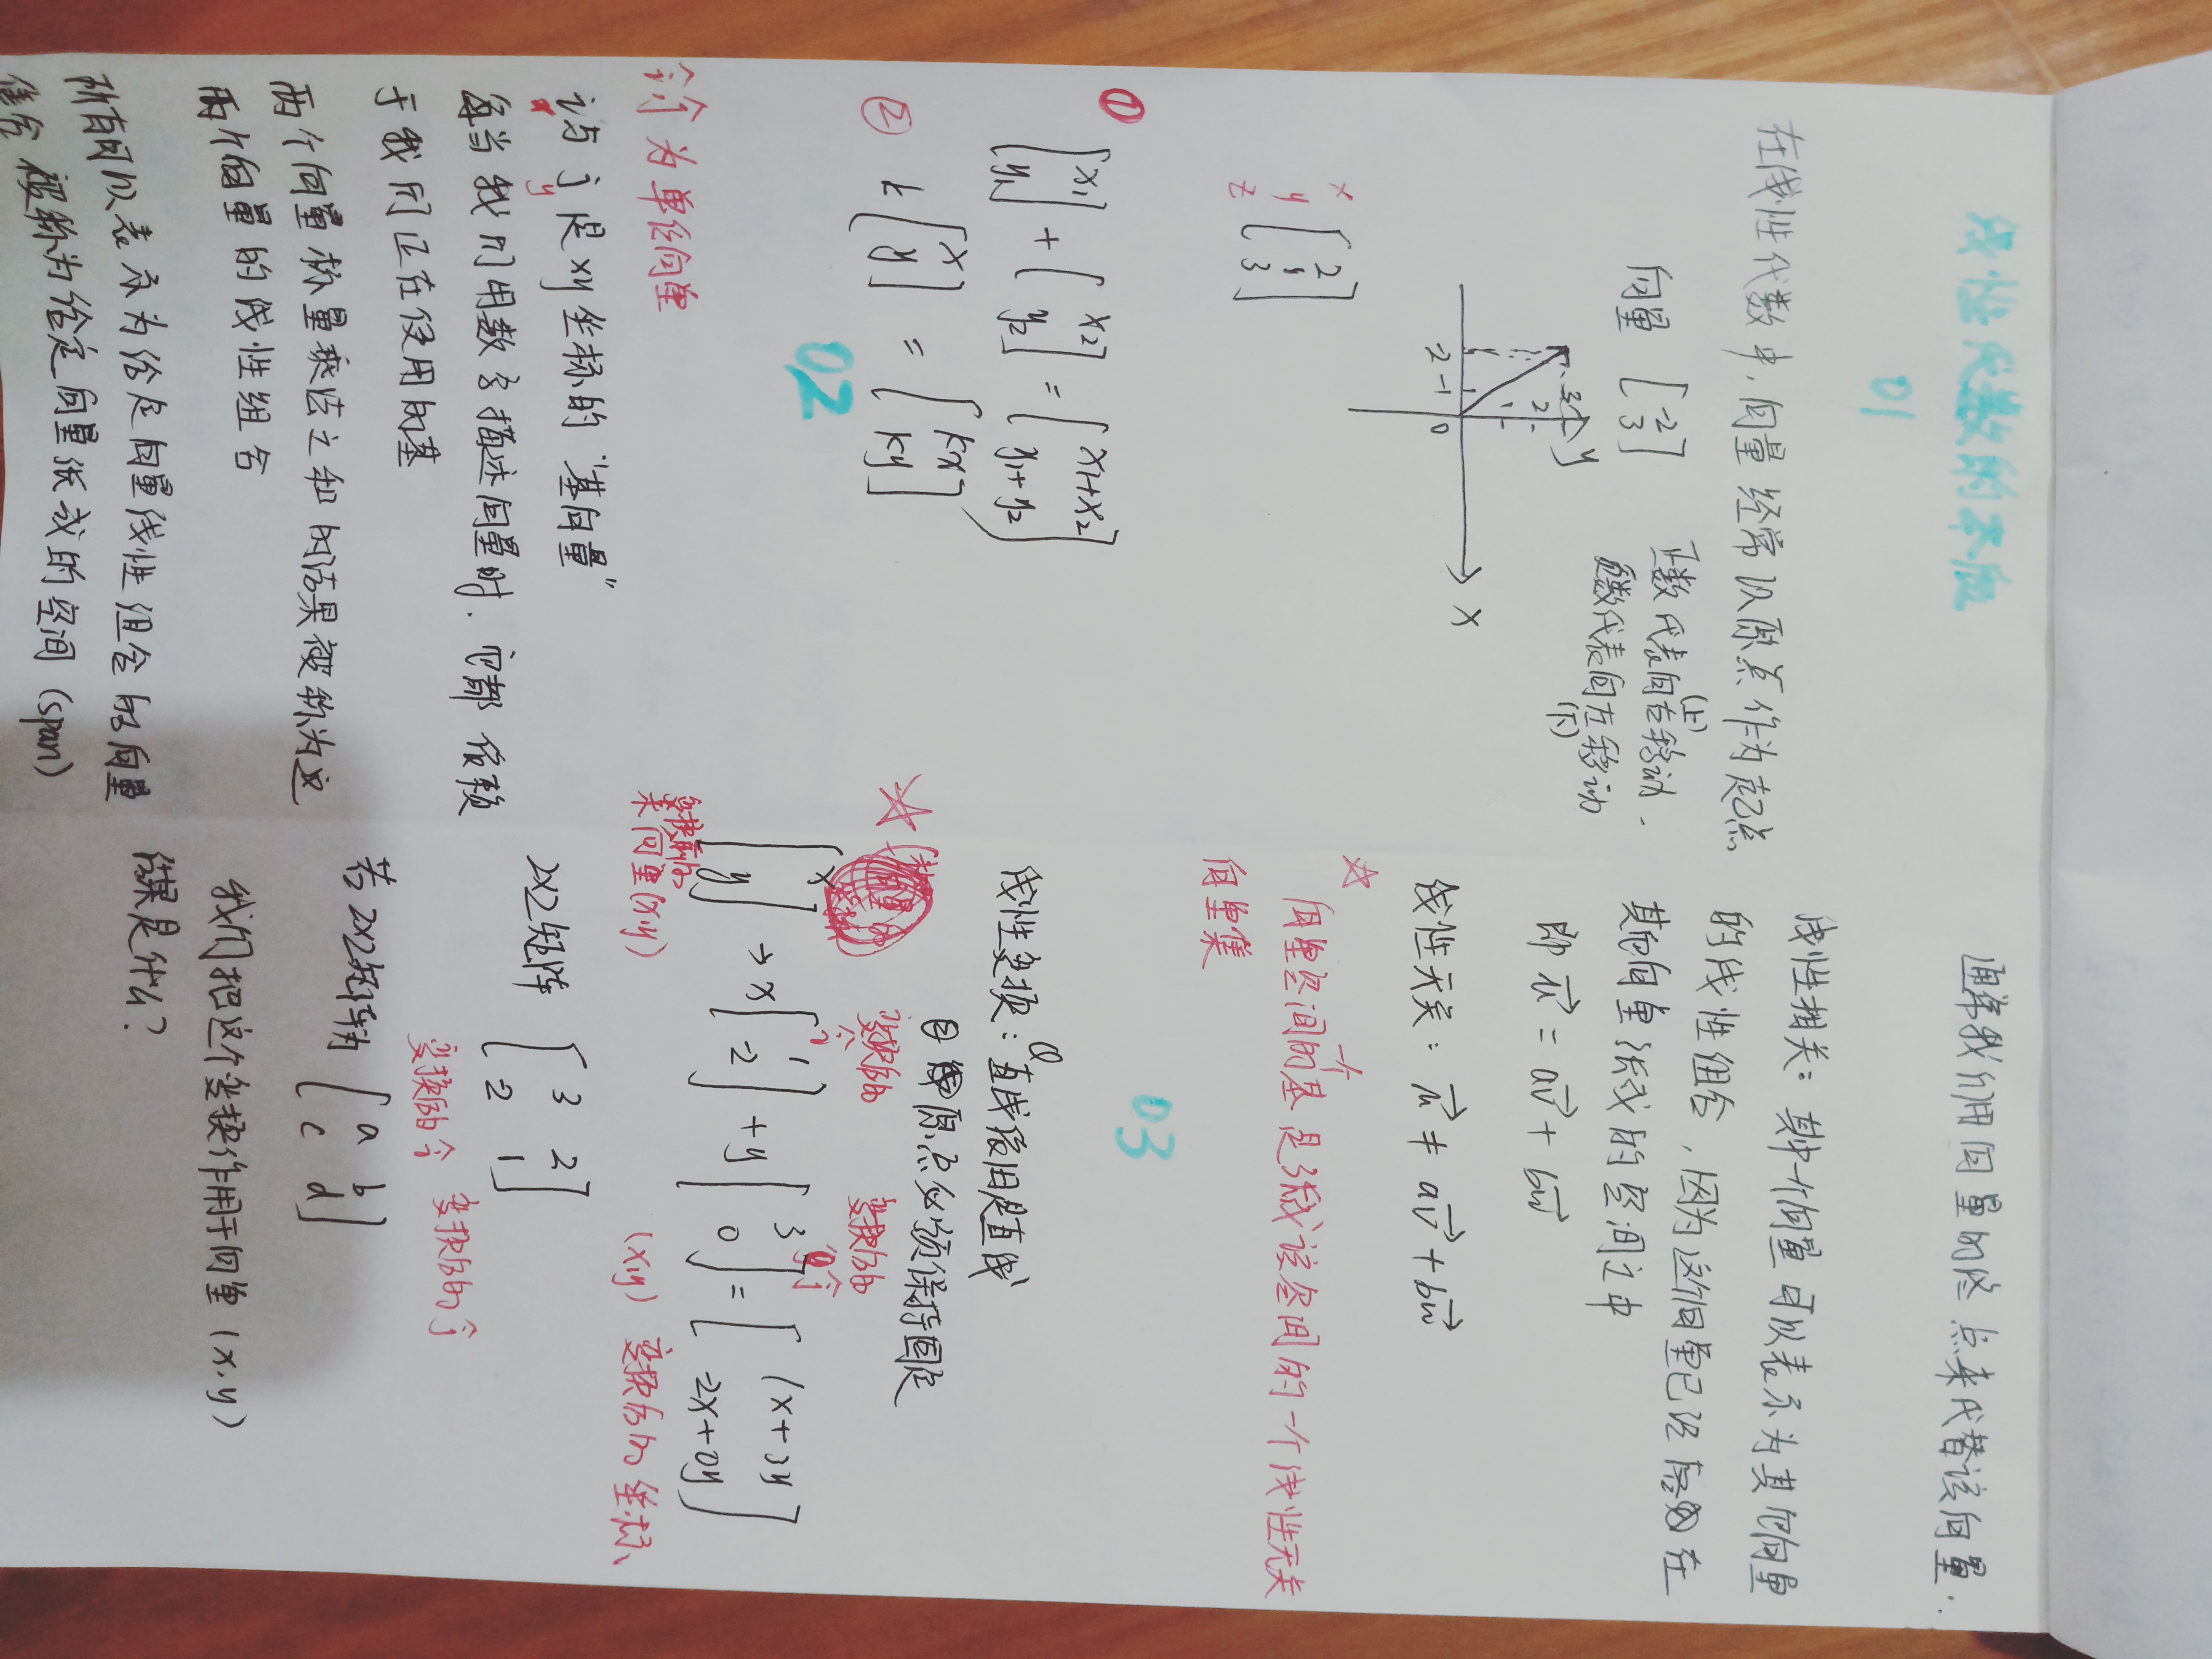 线性代数的本质
01
在线性代数中,向量经常以原点作为起点
向量 [-2 3]
正数代表向右(上)移动.
负数代表向左(下)移动
y
3
2
1
-2 -1 0
x
x [2
y 1
z 3]
① [x1 y1] + [x2 y2] = [x1+x2 y1+y2]
② k [x y] = [kx ky]
02
î ĵ 为单位向量
î与ĵ是xy坐标的“基向量”
y
每当我们用数字描述向量时,它都依赖
于我们正在使用的基
两个向量标量乘法之和的结果被称为这
两个向量的线性组合
所有可以表示为给定向量线性组合的向量
集合 被称为给定向量张成的空间 (span)
通常我们用向量的终点来代替该向量.
线性相关: 其中一个向量可以表示为其他向量
的线性组合,因为这个向量已经落在
其他向量张成的空间之中
即 u⃗ = av⃗ + bw⃗
线性无关: u⃗ ≠ av⃗ + bw⃗
☆ 向量空间的一个基是张成该空间的一个线性无关
向量集
03
线性变换: ①直线后旧是直线
②原点必须保持固定
☆
变换后的 î
变换后的 ĵ
[x y] → x [1 -2] + y [3 0] = [1x+3y -2x+0y]
变换前的
来向量(x,y)
(x,y) 变换后的坐标
2×2矩阵 [3 2
-2 1]
变换后的 î 变换后的 ĵ
若2×2矩阵为 [a b
c d]
我们把这个变换作用于向量 (x.y)
结果是什么?